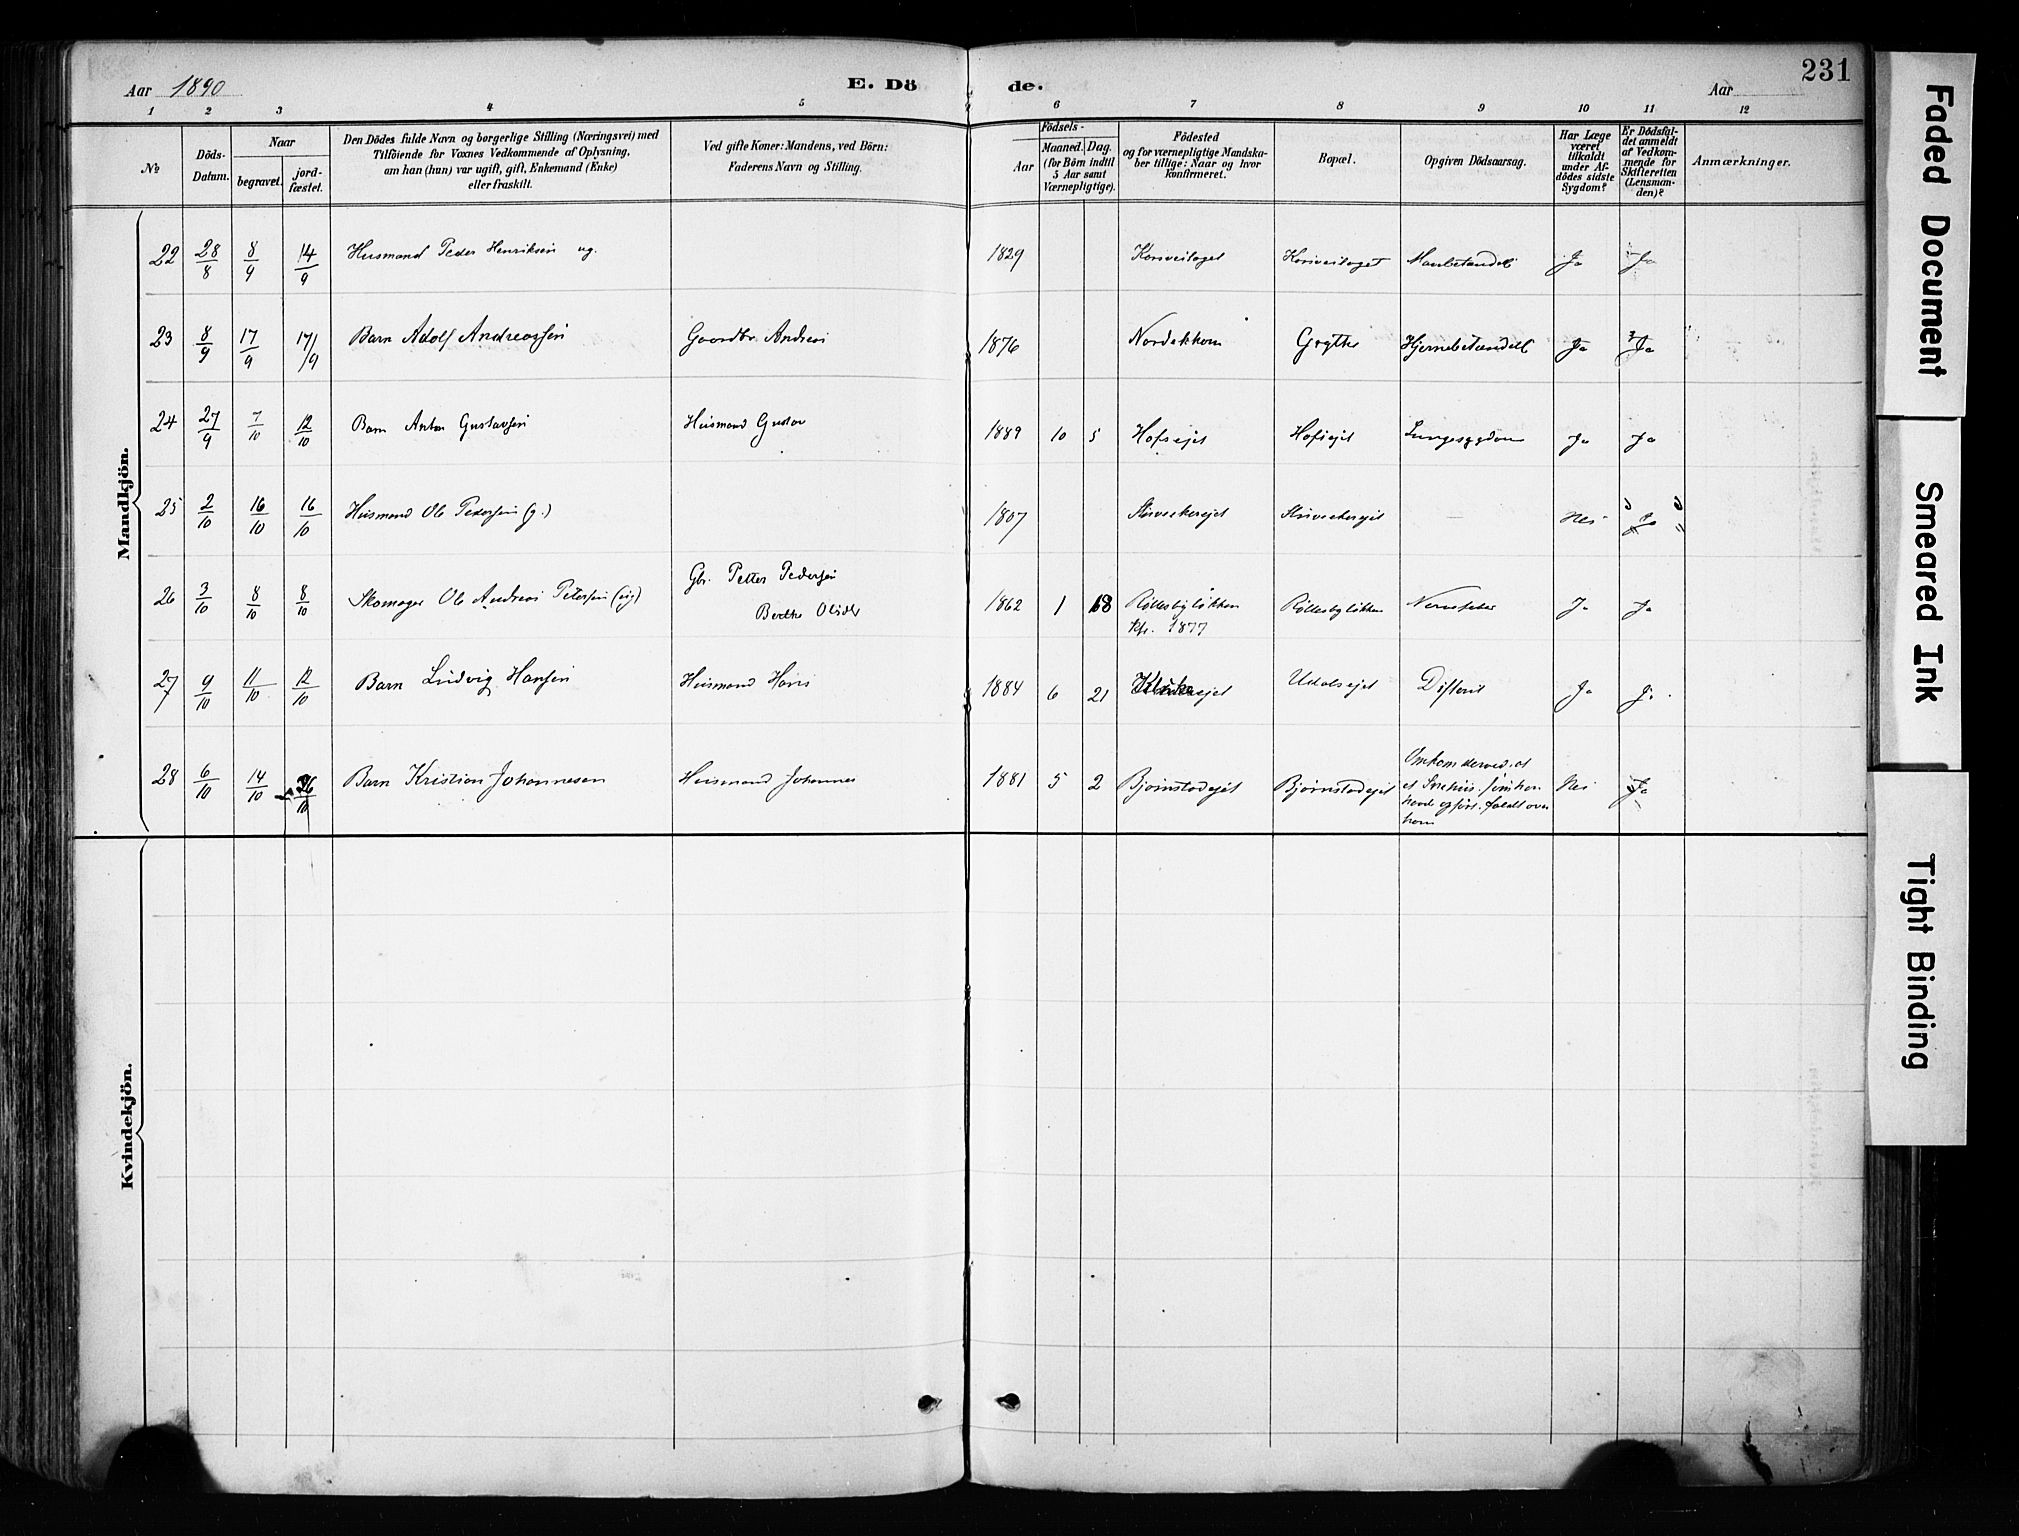 231
Aar 1890
E. Dö
de.
Aar
1 2 3 4 5 6 7 8 9 10 11 12
№
Döds-
Datum.
Naar
begravet.
jord-
fæstet.
Den Dödes fulde Navn og borgerlige Stilling (Næringsvei) med
Tilföiende for Voxnes Vedkommende af Oplysning,
om han (hun) var ugift, gift, Enkemand (Enke)
eller fraskilt.
Ved gifte Koner: Mandens, ved Börn:
Faderens Navn og Stilling.
Födsels-
Aar
Maaned.
Dag.
(for Börn indtil
5 Aar samt
Værnepligtige).
Födested
og for værnepligtige Mandska-
ber tillige: Naar og hvor
konfirmeret.
Bopæl.
Opgiven Dödsaarsag.
Har Læge
været
tilkaldt
under Af-
dödes sidste
Sygdom?
Er Dödsfal-
det anmeldt
af Vedkom-
mende for
Skifteretten
(Lensman-
den)?
Anmærkninger.
Mandkjön.
22 28/8 8/9 14/9 Husmand Peder Henriksen ug. 1829 Ja Ja
23 8/9 17/9 17/9 Barn Adolf Andreassen Gaardbr. Andreas 1876 Hjernebetændelse Ja Ja
24 27/9 7/10 12/10 Barn Anton Gustavsen Husmand Gustav 1889 10 5 Hofsejet Hofsejet Lungesygdom Ja Ja
25 2/10 16/10 16/10 Husmand Ole Pedersen (g.) 1807 — Nei Ja
26 3/10 8/10 8/10 Skomager Ole Andreas Petersen (ug) Gbr. Petter Pedersen
Berthe Olsdtr 1862 1 18 Röllesbyløkken Röllesbyløkken Ja Ja
Kfr. 1877
27 9/10 11/10 12/10 Barn Ludvig Hansen Husmand Hans 1884 6 21 Udalsejet Difterit Ja Ja
28 6/10 14/10 26/10 Barn Kristian Johannesen Husmand Johannes 1881 5 2 Bjørnstadejet Bjørnstadejet Omkom derved, at
et Snehus, som han
havde opført, faldt over
ham Nei Ja
Kvindekjön.
Faded Document
Smeared Ink
Tight Binding